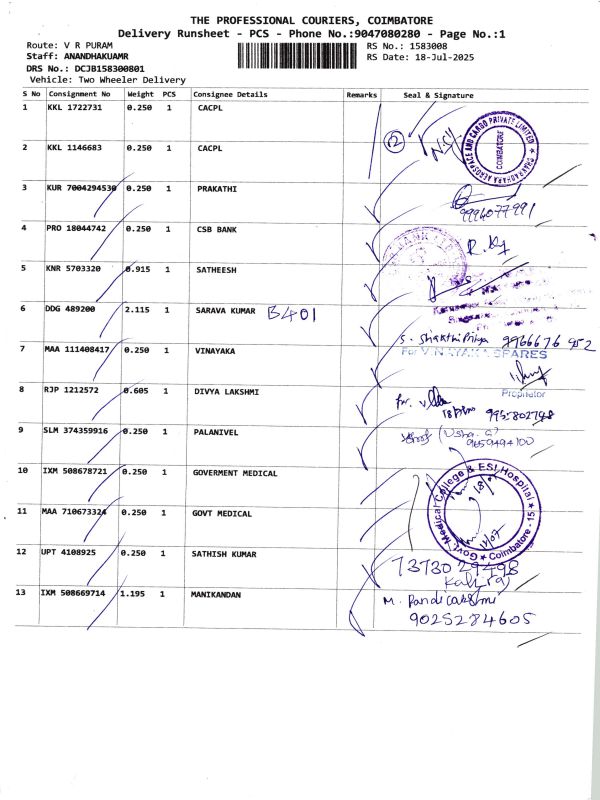 THE PROFESSIONAL COURIERS, COIMBATORE
Delivery Runsheet - PCS - Phone No.:9047080280 - Page No.:1
Route: V R PURAM
RS No.: 1583008
Staff: ANANDHAKUAMR
RS Date: 18-Jul-2025
DRS No.: DCJB158300801
Vehicle: Two Wheeler Delivery
S No Consignment No Weight PCS Consignee Details Remarks Seal & Signature
1 KKL 1722731 0.250 1 CACPL
2 KKL 1146683 0.250 1 CACPL
12
COIMBATORE
3 KUR 7004294530 0.250 1 PRAKATHI
9994077991
4 PRO 18044742 0.250 1 CSB BANK
5 KNR 5703320 0.915 1 SATHEESH
6 DDG 489200 2.115 1 SARAVA KUMAR B401
S. Shakthi Priya 9966676 952
7 MAA 111408417 0.250 1 VINAYAKA
For VINAYAKA SPARES
Proprietor
8 RJP 1212572 0.605 1 DIVYA LAKSHMI
9 SLM 374359916 0.250 1 PALANIVEL
9659494100
10 IXM 508678721 0.250 1 GOVERMENT MEDICAL
Govt. Medical College & ESI Hospital
Coimbatore - 15
11 MAA 710673324 0.250 1 GOVT MEDICAL
12 UPT 4108925 0.250 1 SATHISH KUMAR
7373029498
13 IXM 508669714 1.195 1 MANIKANDAN
M. Pandicakshmi
9025284605